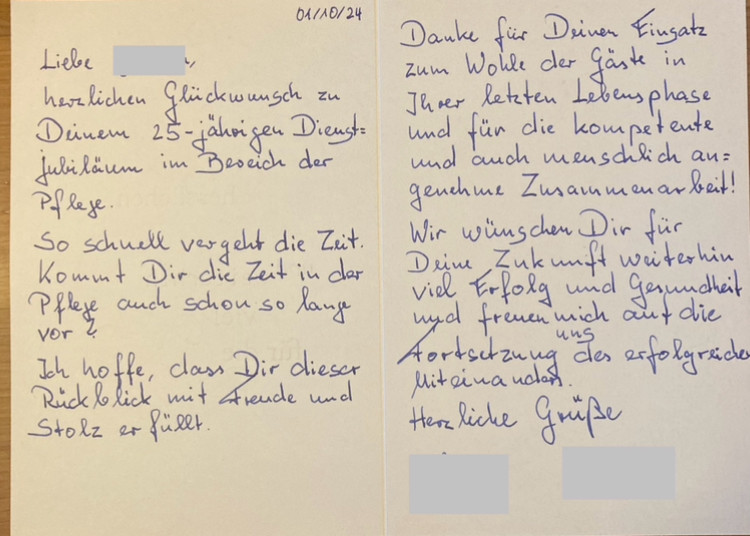 01/10/24
Liebe
herzlichen Glückwunsch zu
Deinem 25-jährigen Dienst=
jubiläum im Bereich der
Pflege.
So schnell vergeht die Zeit.
Kommt Dir die Zeit in der
Pflege auch schon so lange
vor?
Ich hoffe, dass Dir dieser
Rückblick mit Freude und
Stolz erfüllt.
Danke für Deinen Einsatz
zum Wohle der Gäste in
Ihrer letzten Lebensphase
und für die kompetente
und auch menschlich an=
genehme Zusammenarbeit!
Wir wünschen Dir für
Deine Zukunft weiterhin
viel Erfolg und Gesundheit
und freuen mich auf die
uns
Fortsetzung des erfolgreichen
Miteinanders.
Herzliche Grüße